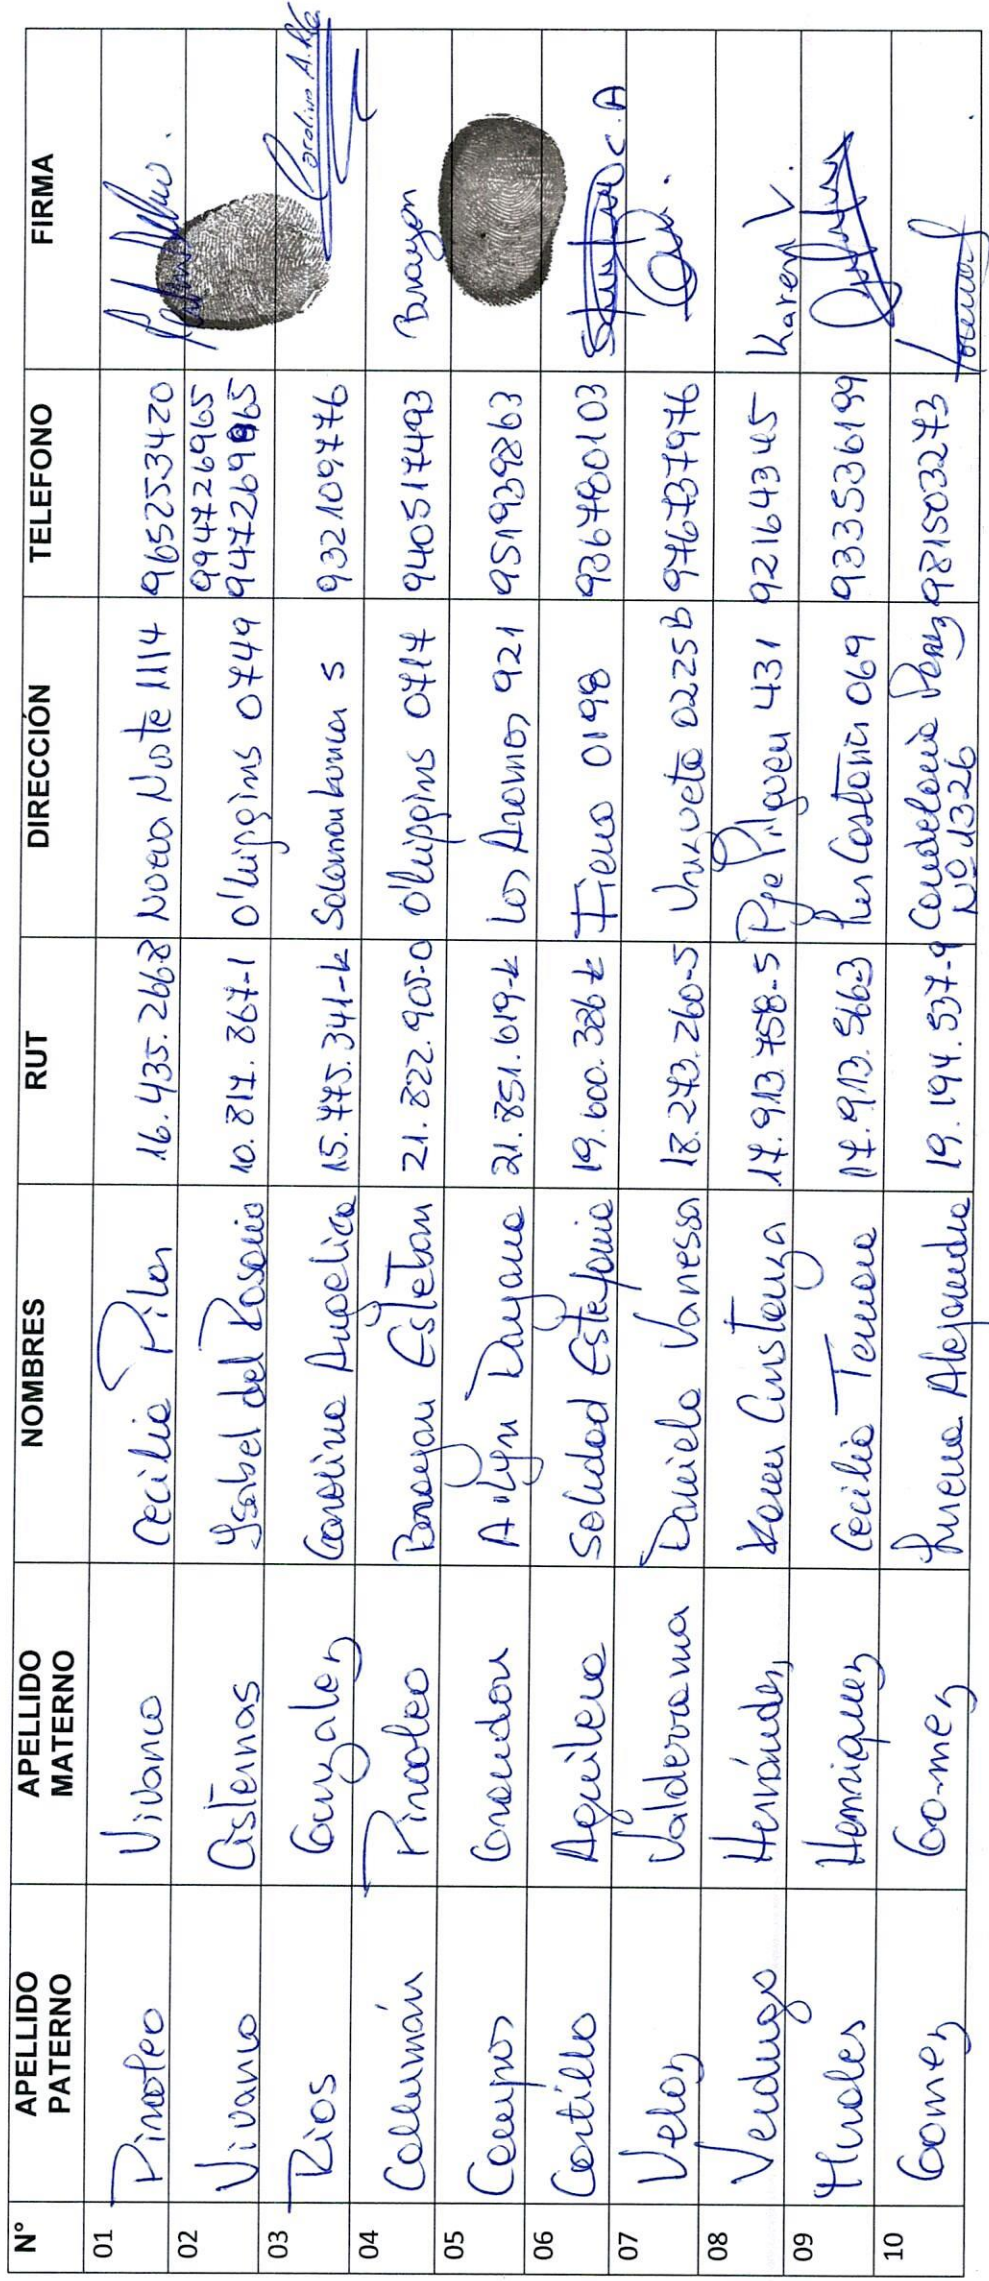 N° APELLIDO PATERNO APELLIDO MATERNO NOMBRES RUT DIRECCIÓN TELEFONO FIRMA
01 Pincoleo Vivanco Cecilia Pilar 16.435.266-8 Nueva Norte 1114 965253420
02 Vivanco Cisternas Ysabel del Rosario 10.817.867-1 O'higgins 0749 994726965 947269965
03 Rios Gonzalez Carolina Angelica 15.775.341-k Salamanca S 932109776 Carolina A. R.
04 Collimán Pincoleo Brayan Esteban 21.822.905-0 O'higgins 0717 940517493 Brayan
05 Campos Conaudon Ailyn Dayana 21.851.619-k Los Aromos 921 951939863
06 Castillo Aguilera Soledad Estefania 19.600.386-k Fierro 0198 9367480103 C.A
07 Veloz Valderrama Daniela Vanessa 18.273.260-5 Urrueta 0225B 976737976
08 Verdugo Hernández Karen Constanza 17.913.758-5 Pje Pilquen 431 921643445 Karen V.
09 Mirales Henriquez Cecilia 17.913.566-3 069 933536199
10 Gomez Go-mez Lorena Alejandra 19.194.537-9 Candelaria Perez N° 1326 981503273